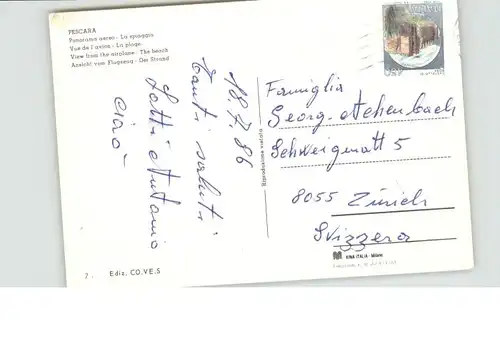 PESCARA
Panorama aereo - La spiaggia
Vue de l'avion - La plage
View from the airplane - The beach
Ansicht vom Flugzeug - Der Strand
18.7.86
Tanti saluti
Lotti e Antonio
ciao
7 - Ediz. CO.VE.S
Riproduzione vietata
Famiglia
Georg-Achenbach
Schweigmatt 5
8055 Zürich
Svizzera
KINA ITALIA - Milano